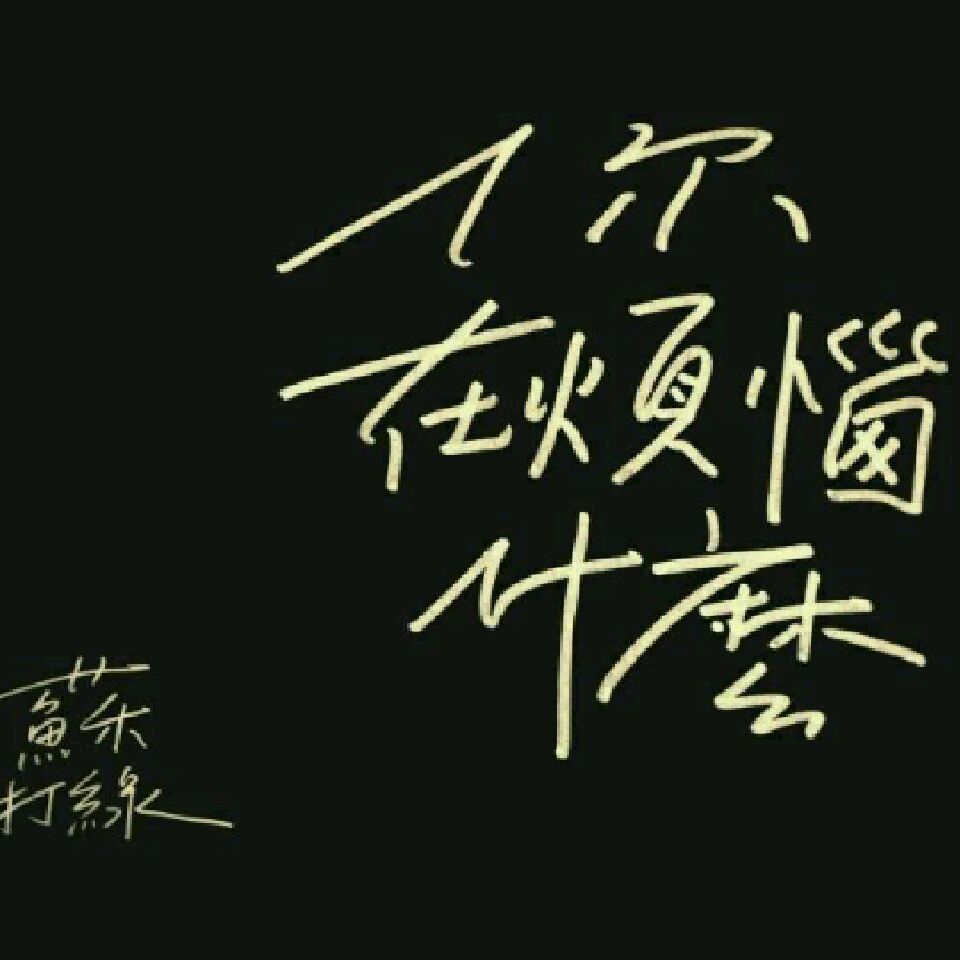 你
在煩惱
什麼
蘇
打線